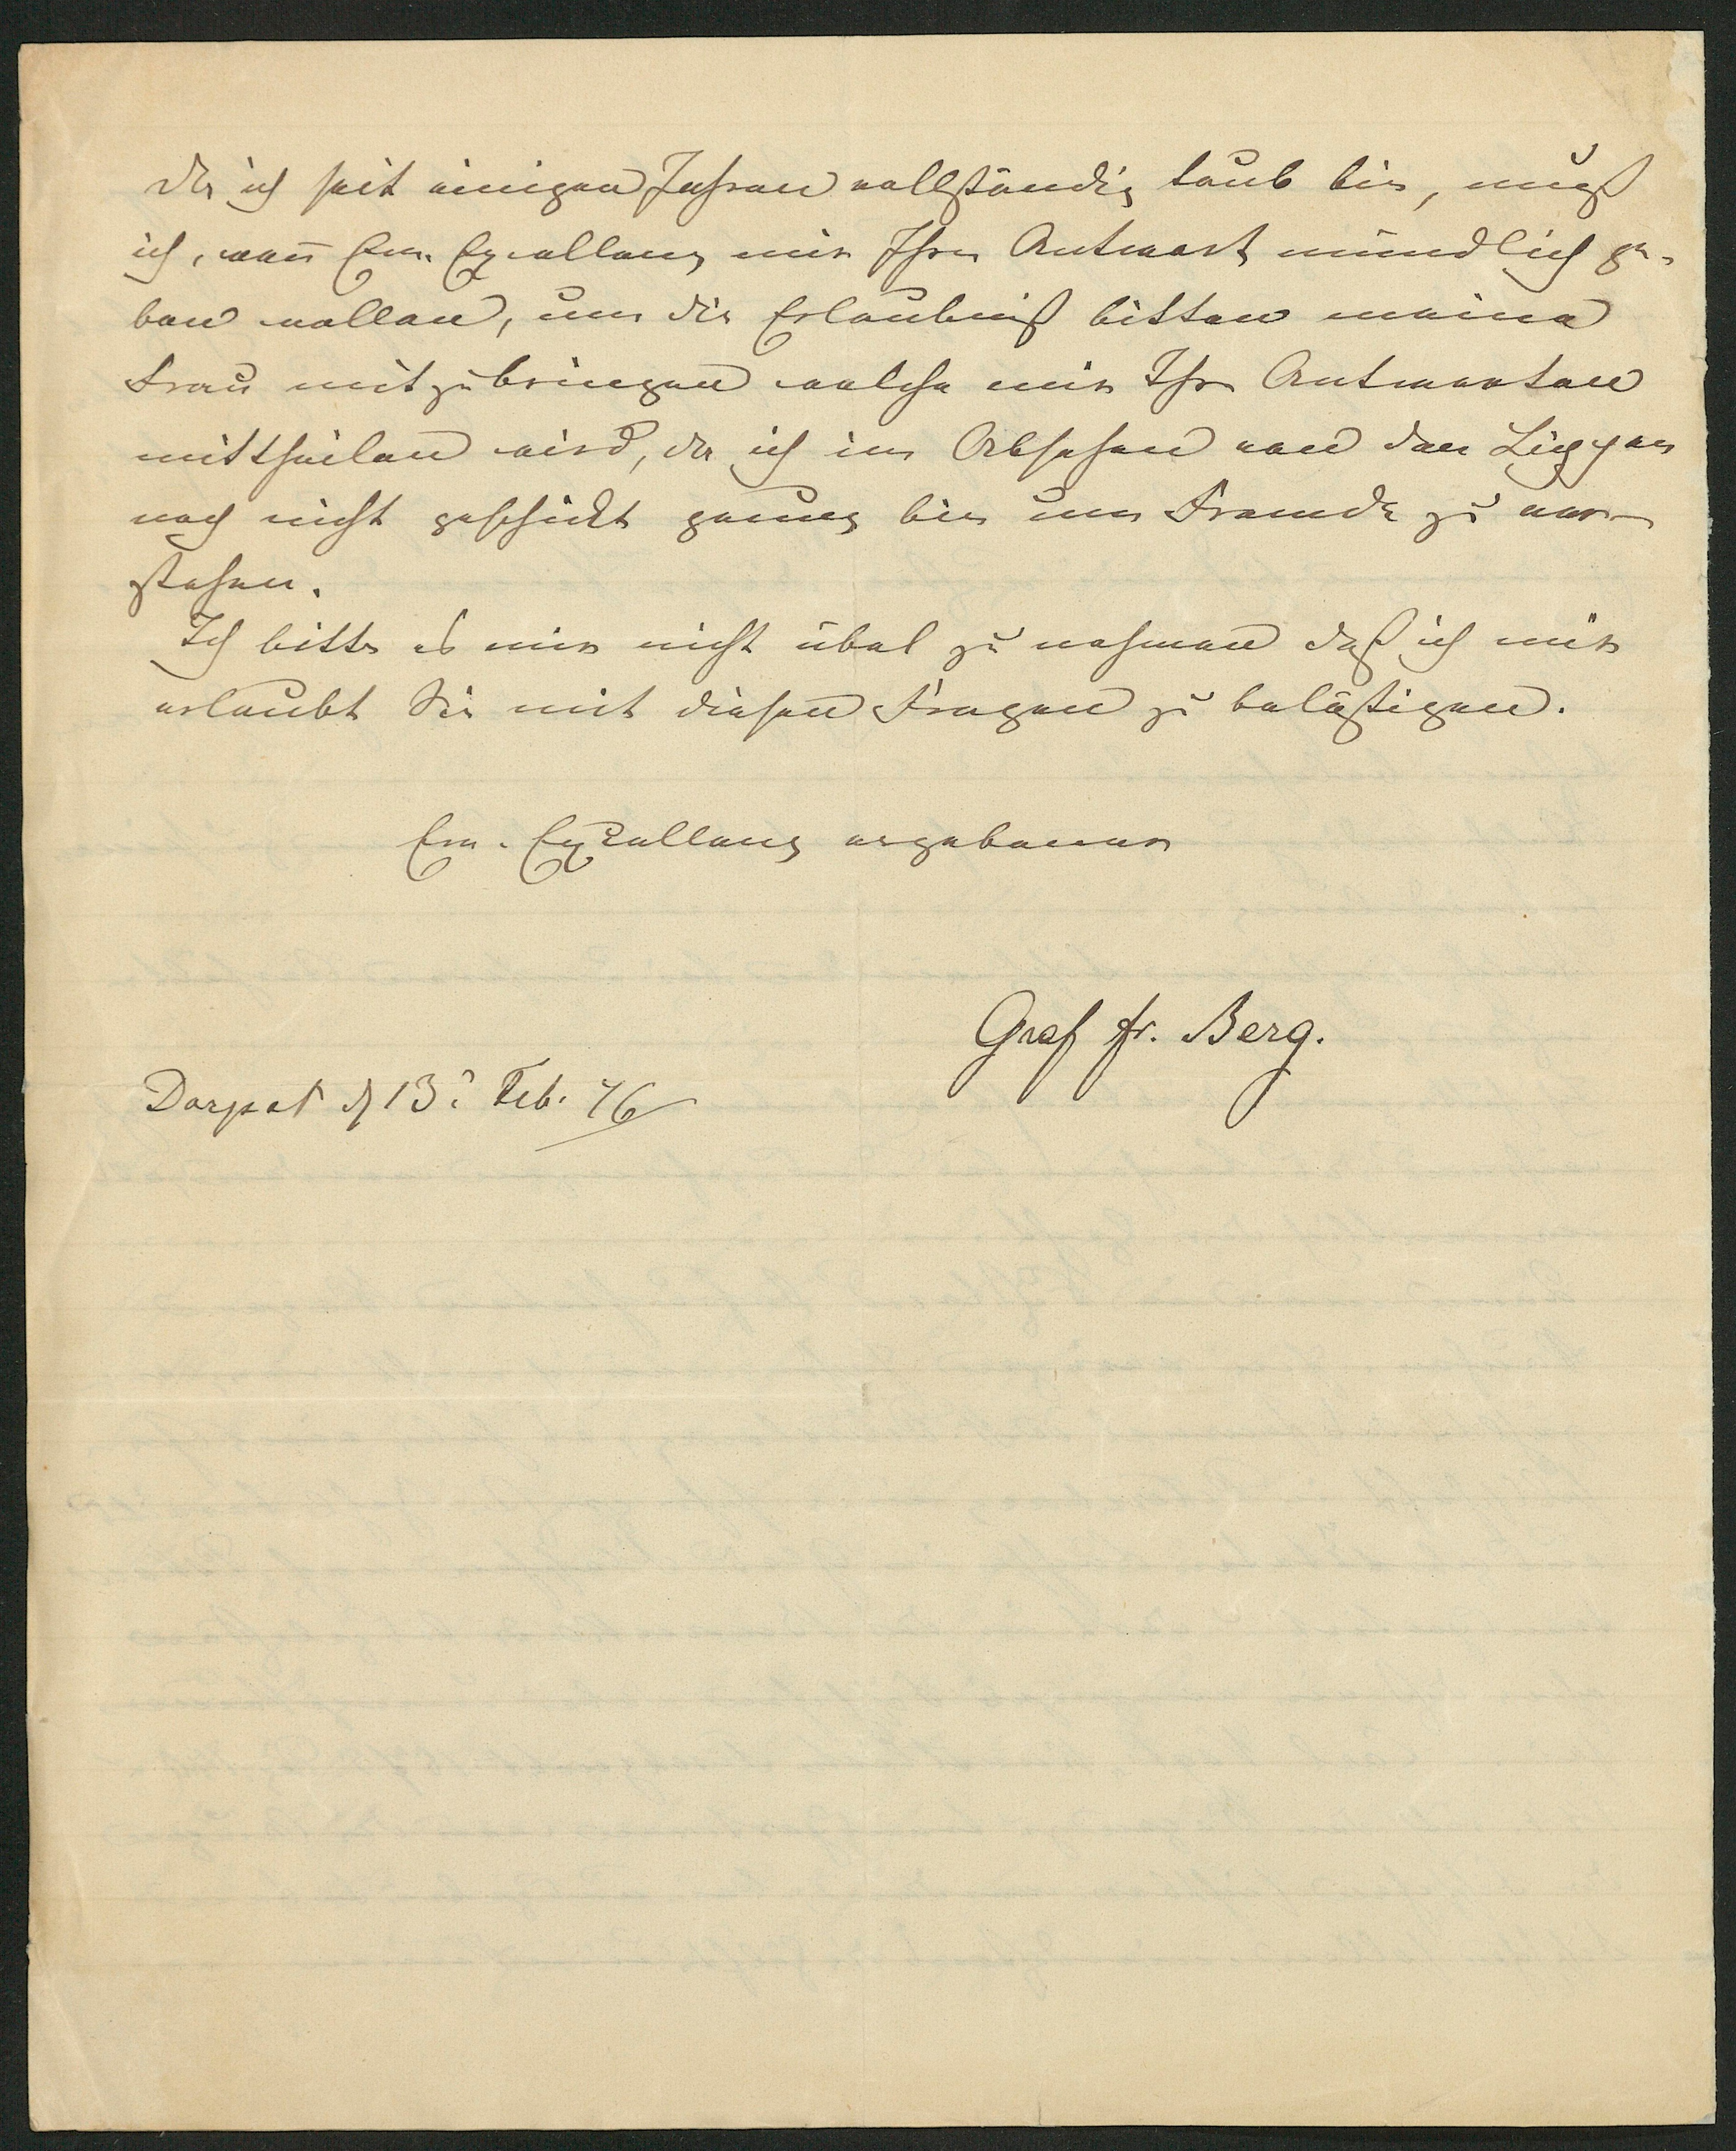 Da ich seit einigen Jahren vollständig taub bin, muß
ich, wenn Eu. Excellenz mir Ihre Antwort mündlich ge-
ben wollen, um die Erlaubniß bitten meine
Frau mitzubringen welche mir Ihre Antworten
mittheilen wird, da ich im Absehen von den Lippen
noch nicht geschickt genug bin um Fremde zu ver-
stehen.
Ich bitte es mir nicht übel zu nehmen daß ich mir
erlaubt Sie mit diesen Fragen zu belästigen.
Eu. Excellenz ergebener
Graf Fr. Berg.
Dorpat d 13. Feb. 76